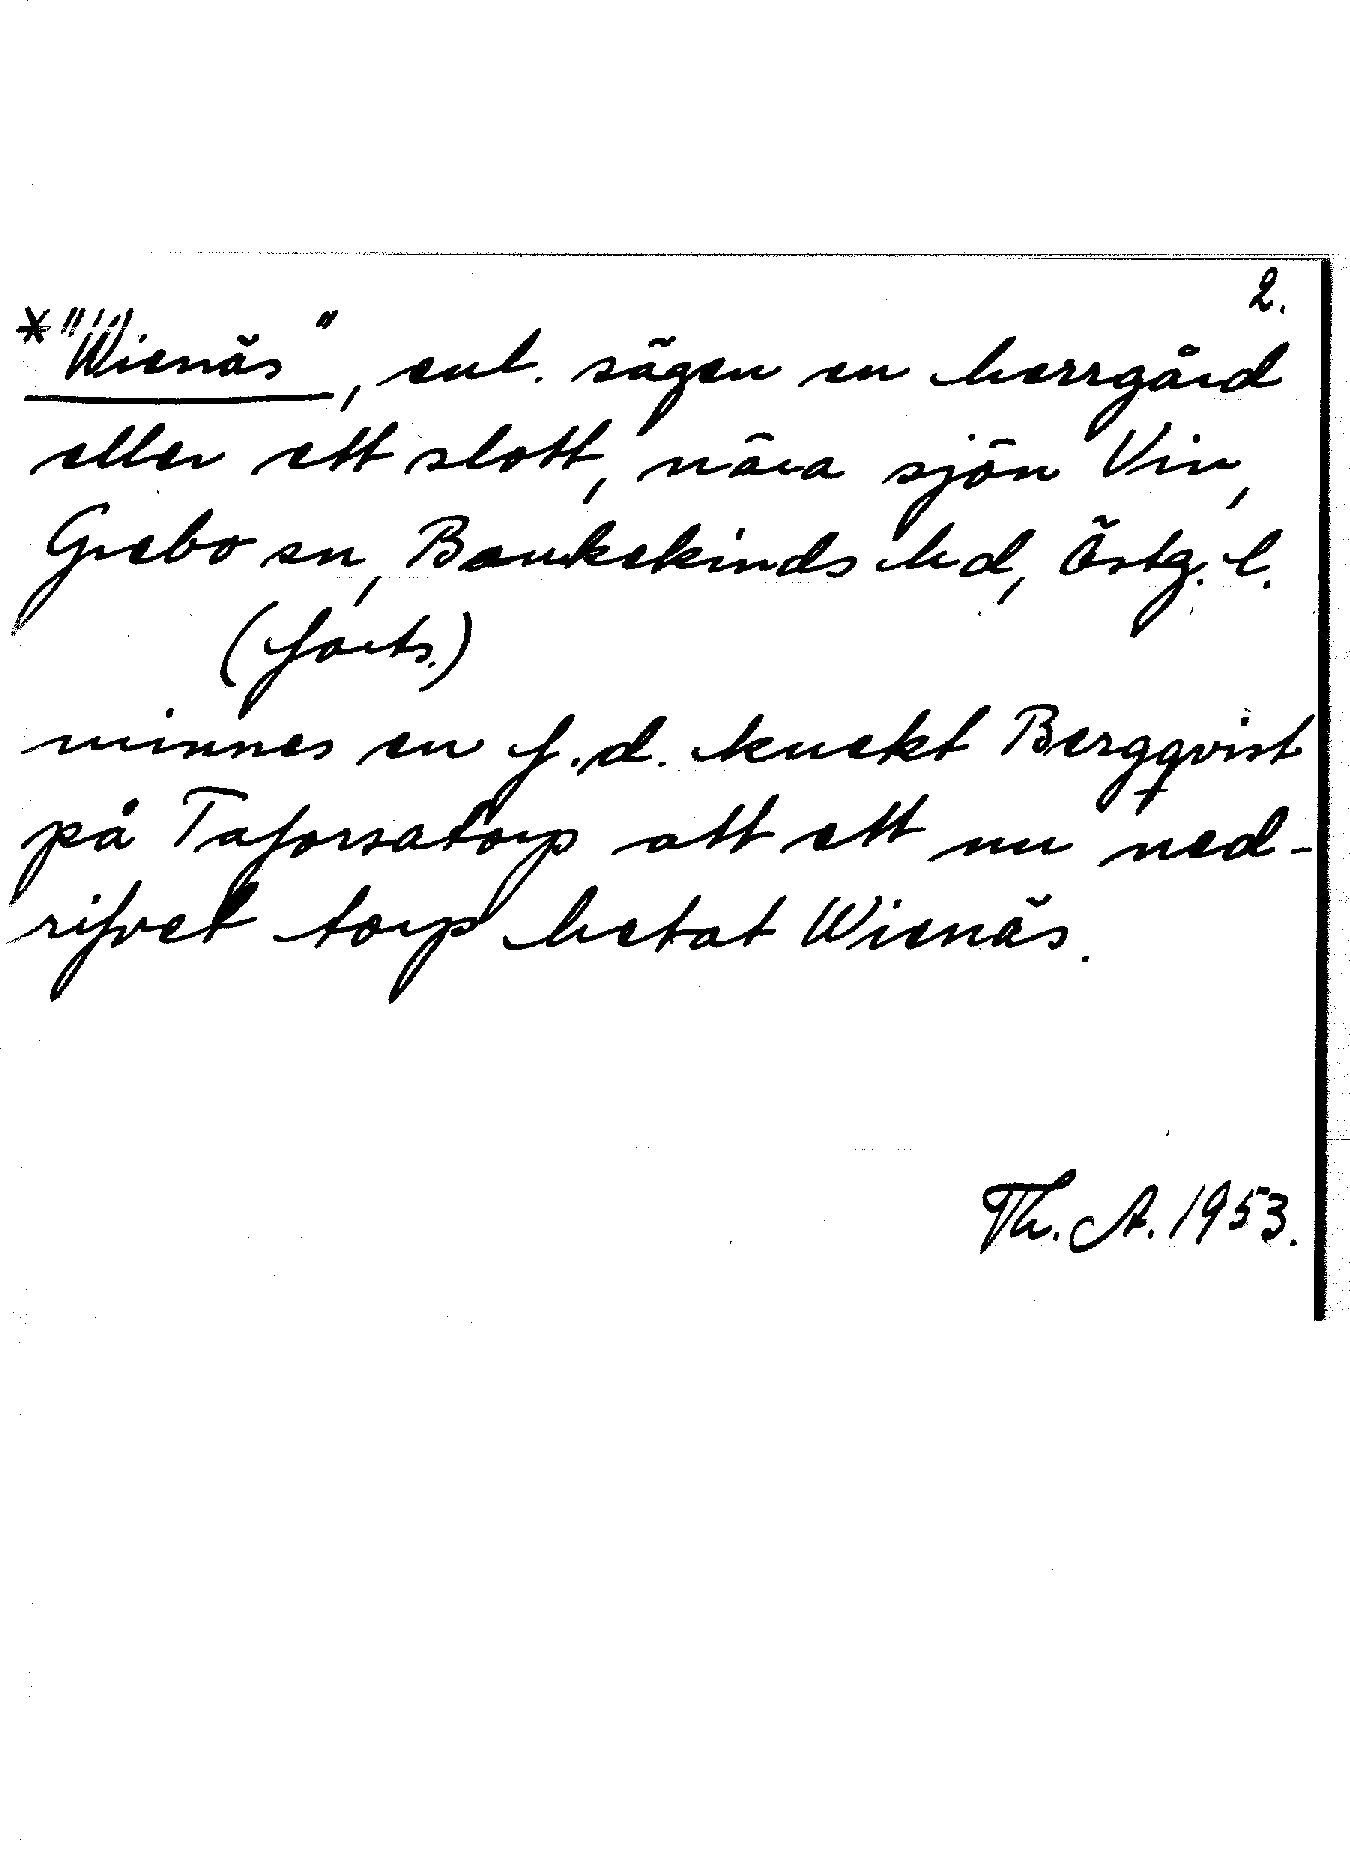 2.
*"Wienäs", enl. sägen en herrgård
eller ett slott, nära sjön Vin,
Grebo sn, Bankekinds hd, Östg. l.
(forts.)
minnes en f.d. knekt Bergqvist
på Taforsatorp att ett nu ned-
rifvet torp hetat Wienäs.
Th. A. 1953.